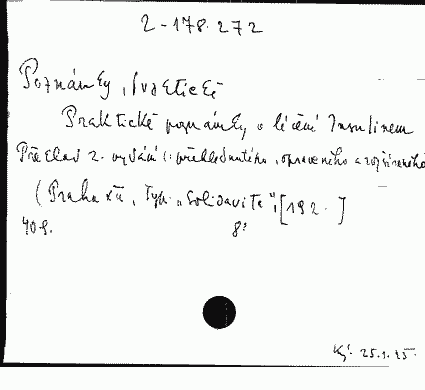 2-178.272
Poznámky, Praktické
Praktické poznámky o léčení Insulinem
Překlad 2. vydání (: přehlédnutého, opraveného a rozšířeného
(Praha XII, Typ. „Solidarita“, [192 . ]
40 s. 8°
25.1.45.